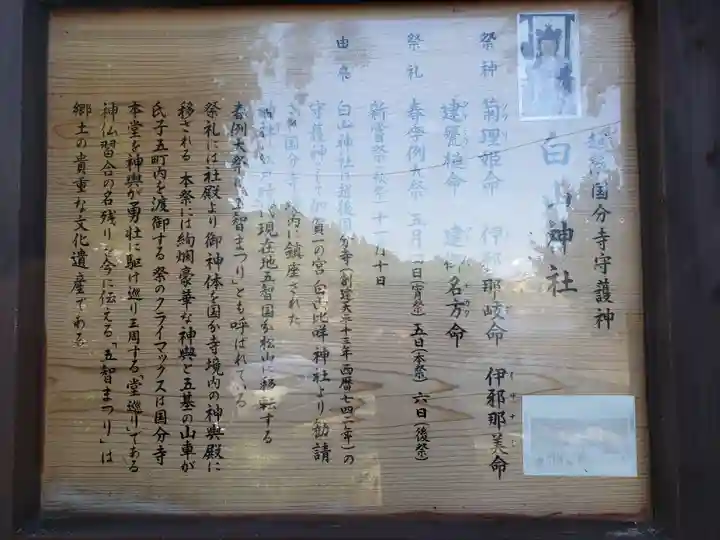 越後国分寺守護神
白山神社
祭神 菊理姫命 伊邪那岐命 伊邪那美命
建甕槌命 建御名方命
祭礼 春季例大祭 五月 日(宵祭)五日(本祭)六日(後祭)
新嘗祭 十一月十日
由 白山神社は越後国分寺(創建天平十三年西暦七四一年)の
守護神として加賀一の宮白山比咩神社より勧請
され国分寺 内に鎮座された
現在地五智国分松山に移転する
春例大祭は五智まつり」とも呼ばれている
祭礼には社殿より御神体を国分寺境内の神輿殿に
移される 本祭には絢爛豪華な神輿と五基の山車が
氏子五町内を渡御する 祭のクライマックスは国分寺
本堂を神輿が勇壮に駆け巡り三周する「堂巡り」である
神仏習合の名残りを今に伝える「五智まつり」は
郷土の貴重な文化遺産である